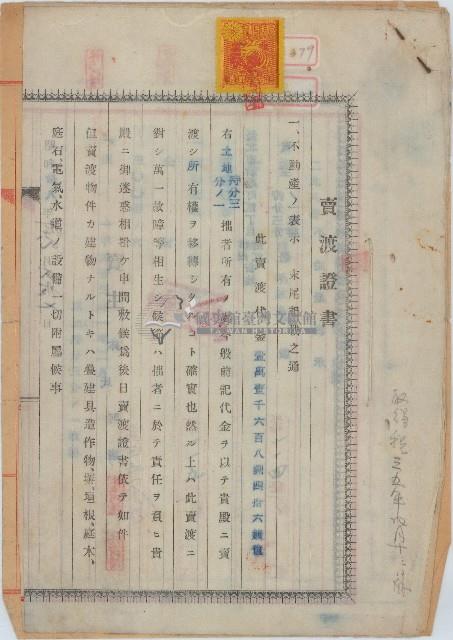 賣渡證書
一、不動産ノ表示 末尾
之通
此賣渡代金壹萬壹千六百八
四拾六錢也
右土地持分三分ノ一 拙者所有ノ
今般前記代金ヲ以テ貴殿ニ賣
渡シ所有權ヲ移轉シ
コト確實也然ル上ハ此賣渡ニ
對シ萬一故障等相生シ候
ハ拙者ニ於テ責任ヲ負ヒ貴
殿ニ御迷惑相掛ケ申間敷候爲後日賣渡證書依テ如件
但賣渡物件カ建物ナルトキハ疊建具造作物、塀、垣根、庭木、
庭石、電氣、水道ノ設備一切附屬候事
國史館臺灣文獻館
TAIWAN HISTORICA